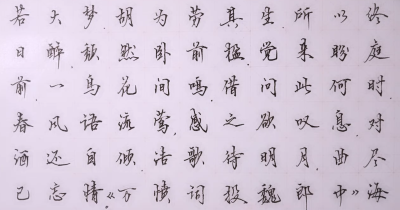 若大梦，胡为劳其生，所以终
日醉，颓然卧前楹，觉来盼庭
前，一鸟花间鸣，借问此何时，
春风语流莺，感之欲叹息，对
酒还自倾，浩歌待明月，曲尽
已忘情，《万愤词投魏郎中》海